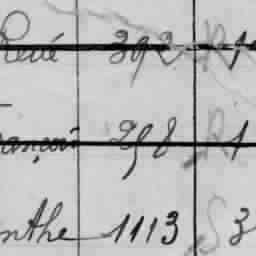 René 392 R 1
ançois 298 R 1
nthe 1113 S 3